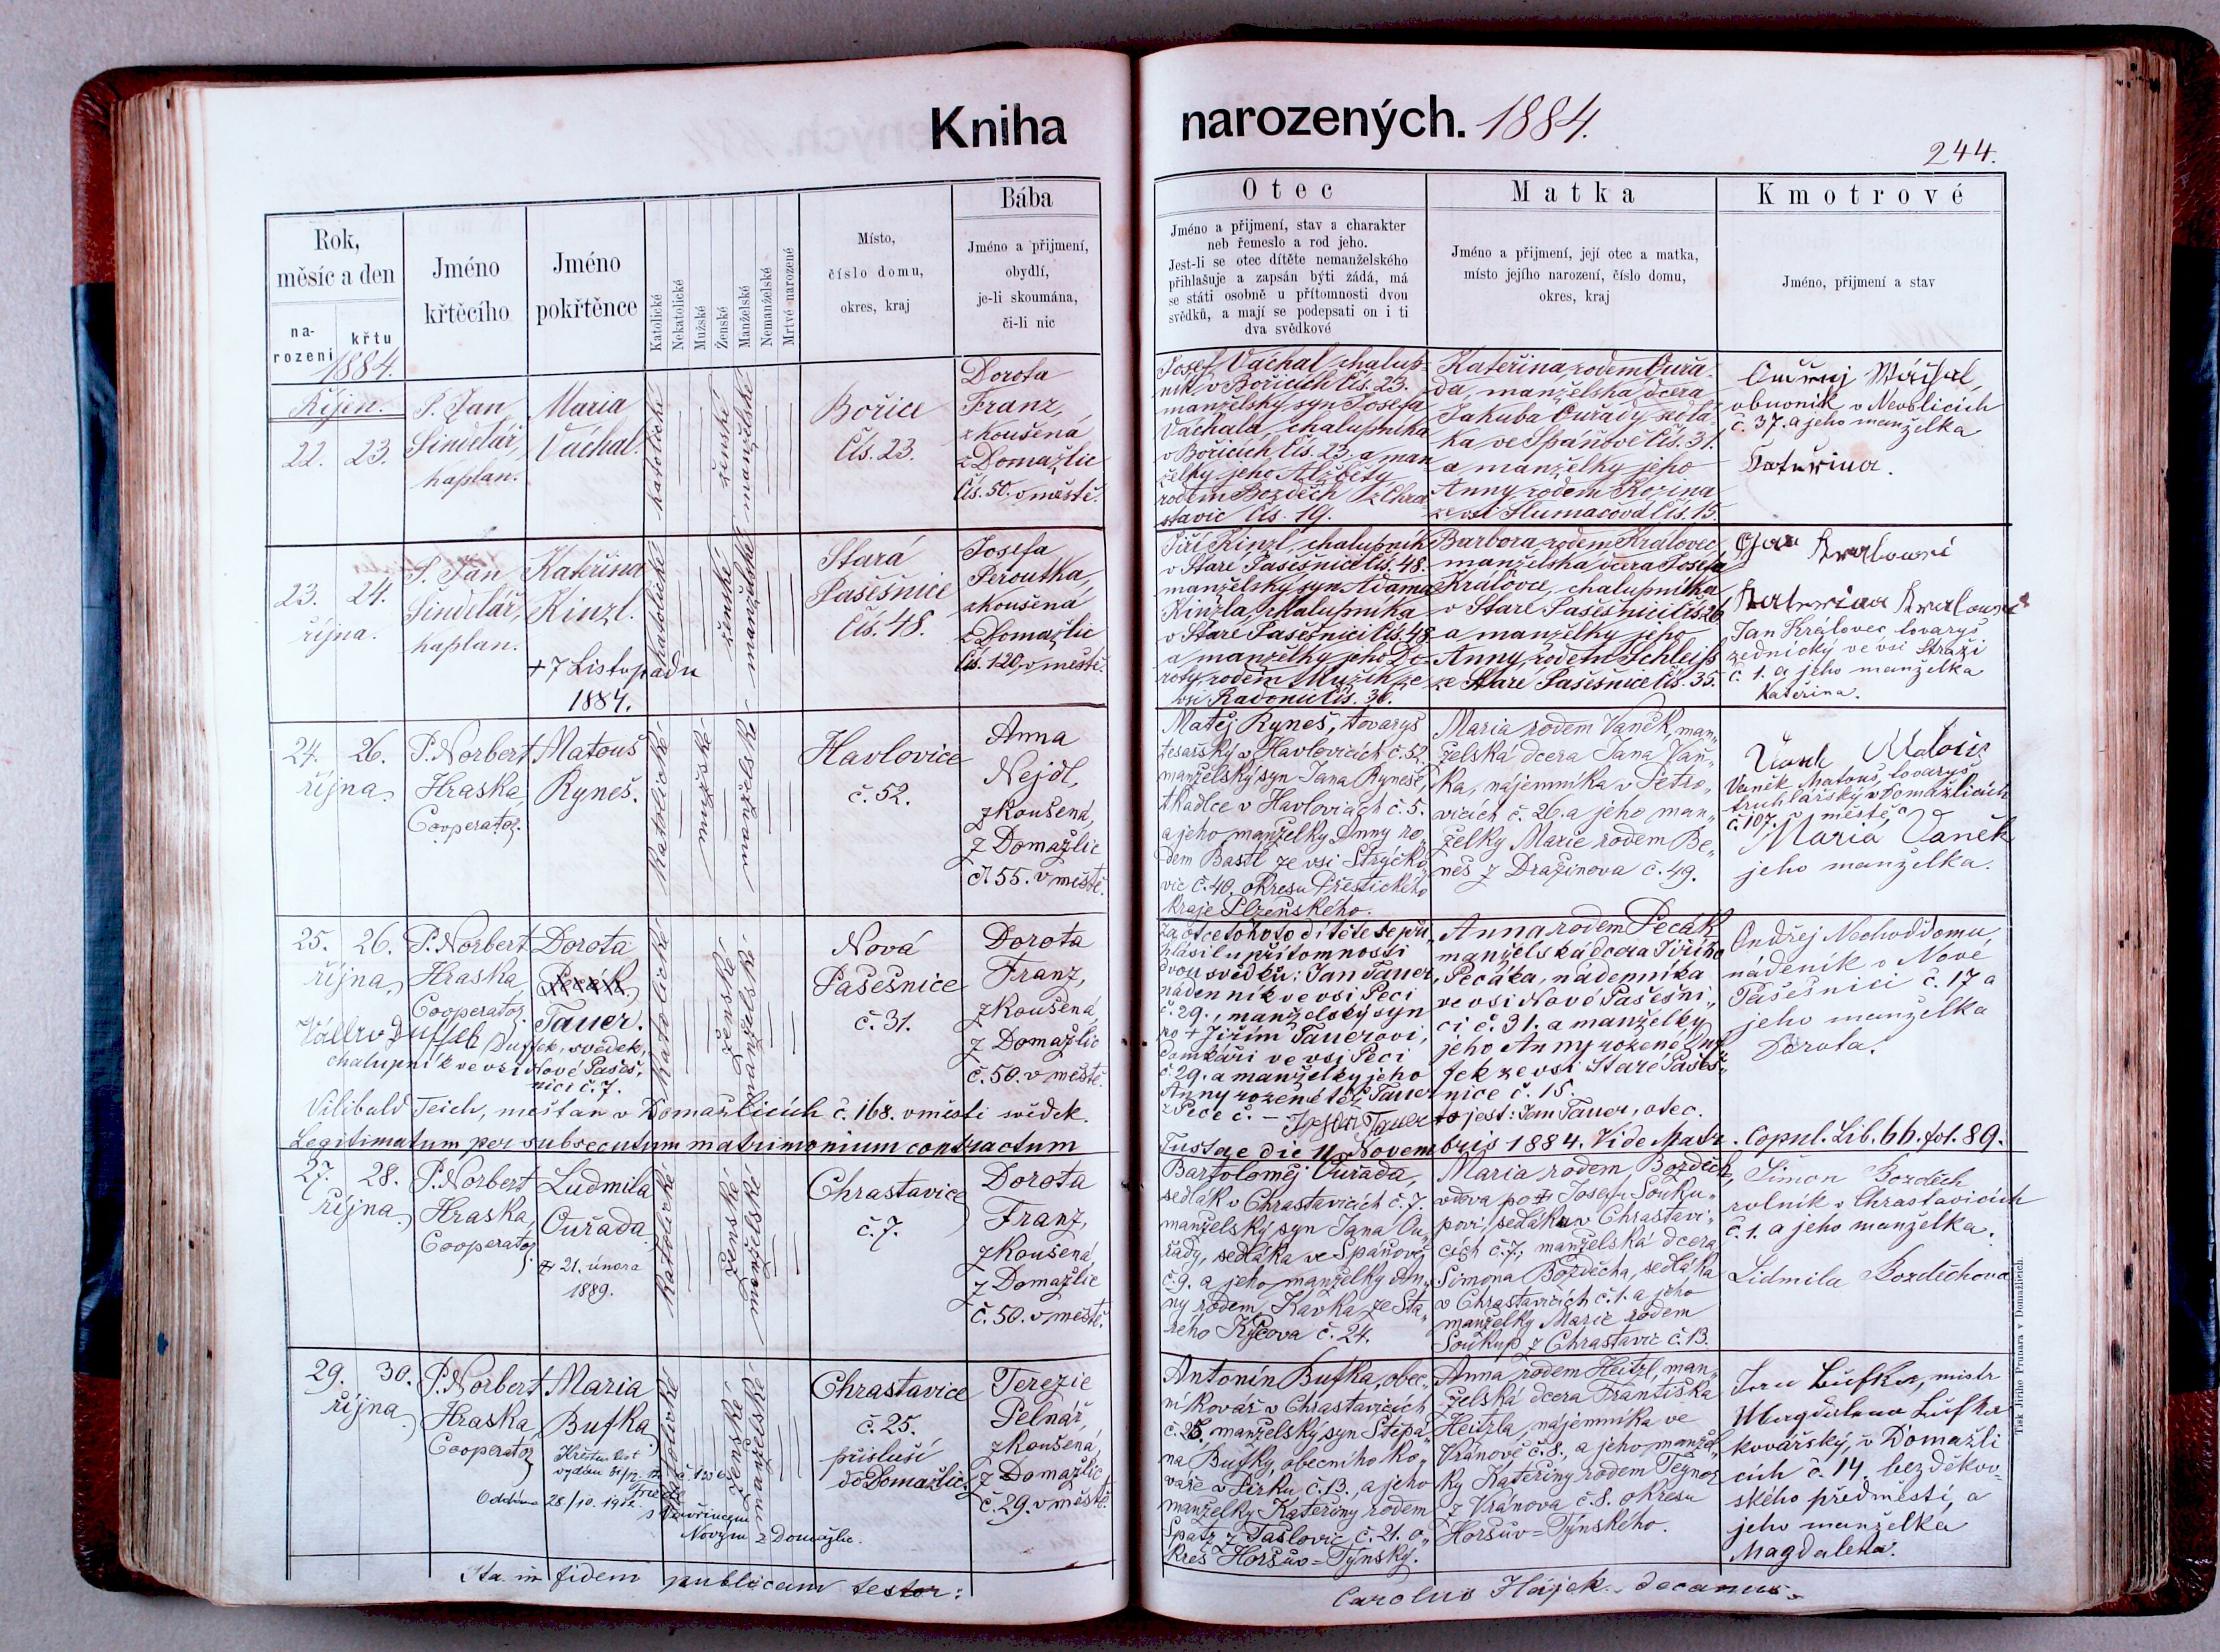 Kniha narozených. 1884.
244.
Rok,
měsíc a den
na-
rození
křtu
1884.
Jméno
křtěcího
Jméno
pokřtěnce
Katolické
Nekatolické
Mužské
Ženské
Manželské
Nemanželské
Mrtvě narozené
Místo,
číslo domu,
okres, kraj
Bába
Jméno a přijmení,
obydlí,
je-li skoumána,
či-li nic
Otec
Jméno a přijmení, stav a charakter
neb řemeslo a rod jeho.
Jest-li se otec dítěte nemanželského
přihlašuje a zapsán býti žádá, má
se státi osobně u přítomnosti dvou
svědků, a mají se podepsati on i ti
dva svědkové
Matka
Jméno a přijmení, její otec a matka,
místo jejího narození, číslo domu,
okres, kraj
Kmotrové
Jméno, přijmení a stav
Říjen.
22. 23.
P. Jan
Šindelář,
kaplan.
Maria
Váchal.
katolické
ženské
manželské
Bořice
Čís. 23.
Dorota
Franz,
zkoušená
z Domažlic
Čís. 50. v městě.
Josef Váchal, chalup-
ník v Bořicích Čís. 23.
manželský syn Josefa
Váchala, chalupníka
v Bořicích Čís. 23. a man
želky jeho Alžběty
rodem Bozděch z Chra
stavic Čís. 19.
Kateřina rodem Ouřa-
da, manželská dcera
Jakuba Ouřady sedlá-
ka ve Spáňově Čís. 31.
a manželky jeho
Anny rodem Kozina
ze vsi Tlumačova Čís. 15.
Ondřej Wáchal,
obuvník v Nevolicích
č. 37. a jeho manželka
Kateřina.
23. 24.
října.
P. Jan
Šindelář,
kaplan.
Kateřina
Kinzl.
+ 7 Listopadu
1884.
katolické
ženské
manželské
Stará
Pasečnice
Čís. 48.
Josefa
Peroutka,
zkoušená
z Domažlic
Čís. 120, v městě.
Jiří Kinzl, chalupník
v Staré Pasečnici Čís. 48.
manželský syn Adama
Kinzla, chalupníka
v Staré Pasečnici Čís. 48
a manželky jeho Do-
roty rodem Mužík ze
vsi Radonic Čís. 36.
Barbora rodem Královec
manželská dcera Josefa
Královce, chalupníka
v Staré Pasečnici Čís 26
a manželky jeho
Anny, rodem Schleiss
ze Staré Pasečnice Čís. 35.
Jan Kralowei
Katerina Kralowei
Jan Královec tovaryš
zednický ve vsi Stráži
č. 1. a jeho manželka
Kateřina.
24. 26.
října
P. Norbert
Hraska,
Cooperator.
Matouš
Ryneš.
katolické
mužské
manželské
Havlovice
č. 52.
Anna
Nejdl,
zkoušená,
z Domažlic
č. 55. v městě.
Matěj Ryneš, tovaryš
tesařský v Havlovicích č. 52.
manželský syn Jana Ryneše,
tkadlce v Havlovicích č. 5.
a jeho manželky Anny ro
dem Bastl ze vsi Strýčko
vic č. 40. okresu Přestického
kraje Plzeňského.
Maria rodem Vaněk, man„
želská dcera Jana Vaň„
ka, nájemníka v Petro„
vicích č. 26. a jeho man„
želky Marie rodem Be„
neš z Dražinova č. 49.
Vaněk Matouš, tovaryš
truhlářský v Domažlicích
č. 107. v městě, a
Maria Vaněk
jeho manželka.
25. 26.
října
P. Norbert
Hraska,
Cooperator.
Dorota
Pecák
Tauer.
katolické
ženské
manželské
Nová
Pasečnice
č. 31.
Dorota
Franz,
zkoušená
z Domažlic
č. 50. v městě.
Duffek, svědek,
chalupník ve vsi Nové Paseč„
nici č. 7.
Vilibald Teich, měšťan v Domažlicích č. 168. v městě svědek.
Za otce tohoto dítěte se při„
hlásil u přítomnosti
dvou svědků: Jan Tauer,
nádenník ve vsi Peci
č. 29., manželský syn
po + Jiřím Tauerovi,
domkáři ve vsi Peci
č. 29. a manželky jeho
Anny rozené též Tauer
z Pece č. — to jest: Jan Tauer, otec.
Anna rodem Pecák
manželská dcera Jiřího
Pecáka, nádenníka
ve vsi Nové Pasečni„
ci č. 31. a manželky
jeho Anny rozené Duf
fek ze vsi Staré Paseč„
nice č. 15.
Ondřej Nechoddomu,
nádeník v Nové
Pasečnici č. 17 a
jeho manželka
Dorota.
Legitimatum per subsecutum matrimonium contractum
Tustae die 11 Novembris 1884. Vide Matr. Copul. Lib. 66. fol. 89.
27. 28.
října
P. Norbert
Hraska,
Cooperator.
Ludmila
Ouřada
+ 21. února
1889.
katolické
ženské
manželské
Chrastavice
č. 7.
Dorota
Franz,
zkoušená,
z Domažlic
č. 50. v městě.
Bartoloměj Ouřada,
sedlák v Chrastavicích č. 7.
manželský syn Jana Ou„
řady, sedláka ve Spáňově
č. 9. a jeho manželky An„
ny rodem Kavka ze Sta„
rého Klíčova č. 24.
Maria rodem Bozděch,
vdova po + Josefu Souku„
povi, sedláku v Chrastavi„
cích č. 7; manželská dcera
Šimona Bozděcha, sedláka
v Chrastavicích č. 1. a jeho
manželky Marie rodem
Soukup z Chrastavic č. 13.
Šimon Bozděch
rolník v Chrastavicích
č. 1. a jeho manželka.
Lidmila Bozděchova
29. 30.
října
P. Norbert
Hraska,
Cooperator
Maria
Bufka
Křestní list
vydán
Oddána 28/10. 1912.
Novým z Domažlic.
katolické
ženské
manželské
Chrastavice
č. 25.
přísluší
do Domažlic.
Terezie
Pelnář,
zkoušená,
z Domažlic
č. 29. v městě.
Antonín Bufka, obec„
ní kovář v Chrastavicích
č. 25. manželský syn Štěpá„
na Bufky, obecního ko„
váře v Pirku č. 13. a jeho
manželky Kateřiny rodem
Spatz z Tašlovic č. 21. o„
kres Horšův=Týnský.
Anna rodem Heitzl, man„
želská dcera Františka
Heitzla, nájemníka ve
Vránově č. 8. a jeho manžel„
ky Kateřiny rodem Teznar
z Vránova č. 8. okresu
Horšův=Týnského.
Bufka, mistr
Magdalena Bufka
kovářský, v Domažli
cích č. 14. bezděkov„
ského předměstí, a
jeho manželka
Magdalena.
Ita in fidem publicam testor:
Carolus Hájek, decanus.
Tisk Jiřího Prunara v Domažlicích.